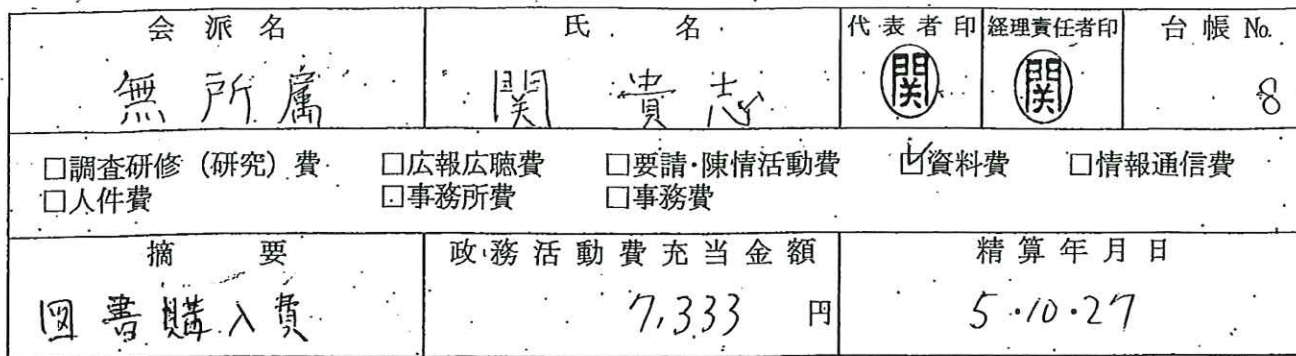 会派名 氏名 代表者印 経理責任者印 台帳No.
無所属 関 貴志 関 関 8
□調査研修（研究）費 □広報広聴費 □要請・陳情活動費 ☑資料費 □情報通信費
□人件費 □事務所費 □事務費
摘要 政務活動費充当金額 精算年月日
図書購入費 7,333 円 5・10・27